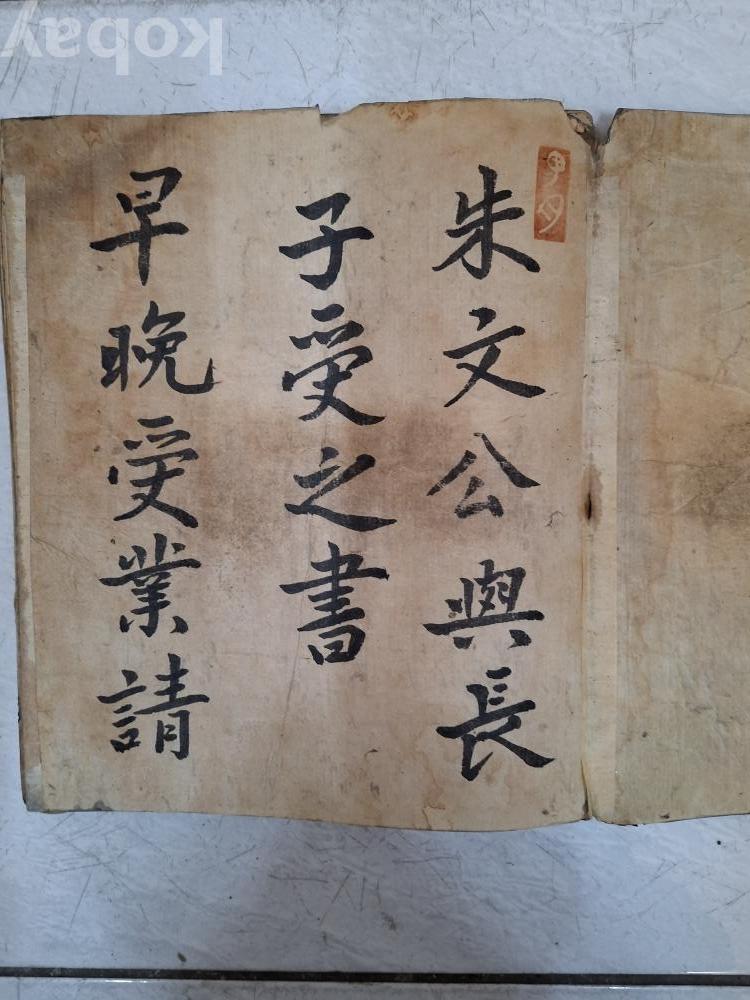 朱文公與長
子受之書
早晚受業請
kobay